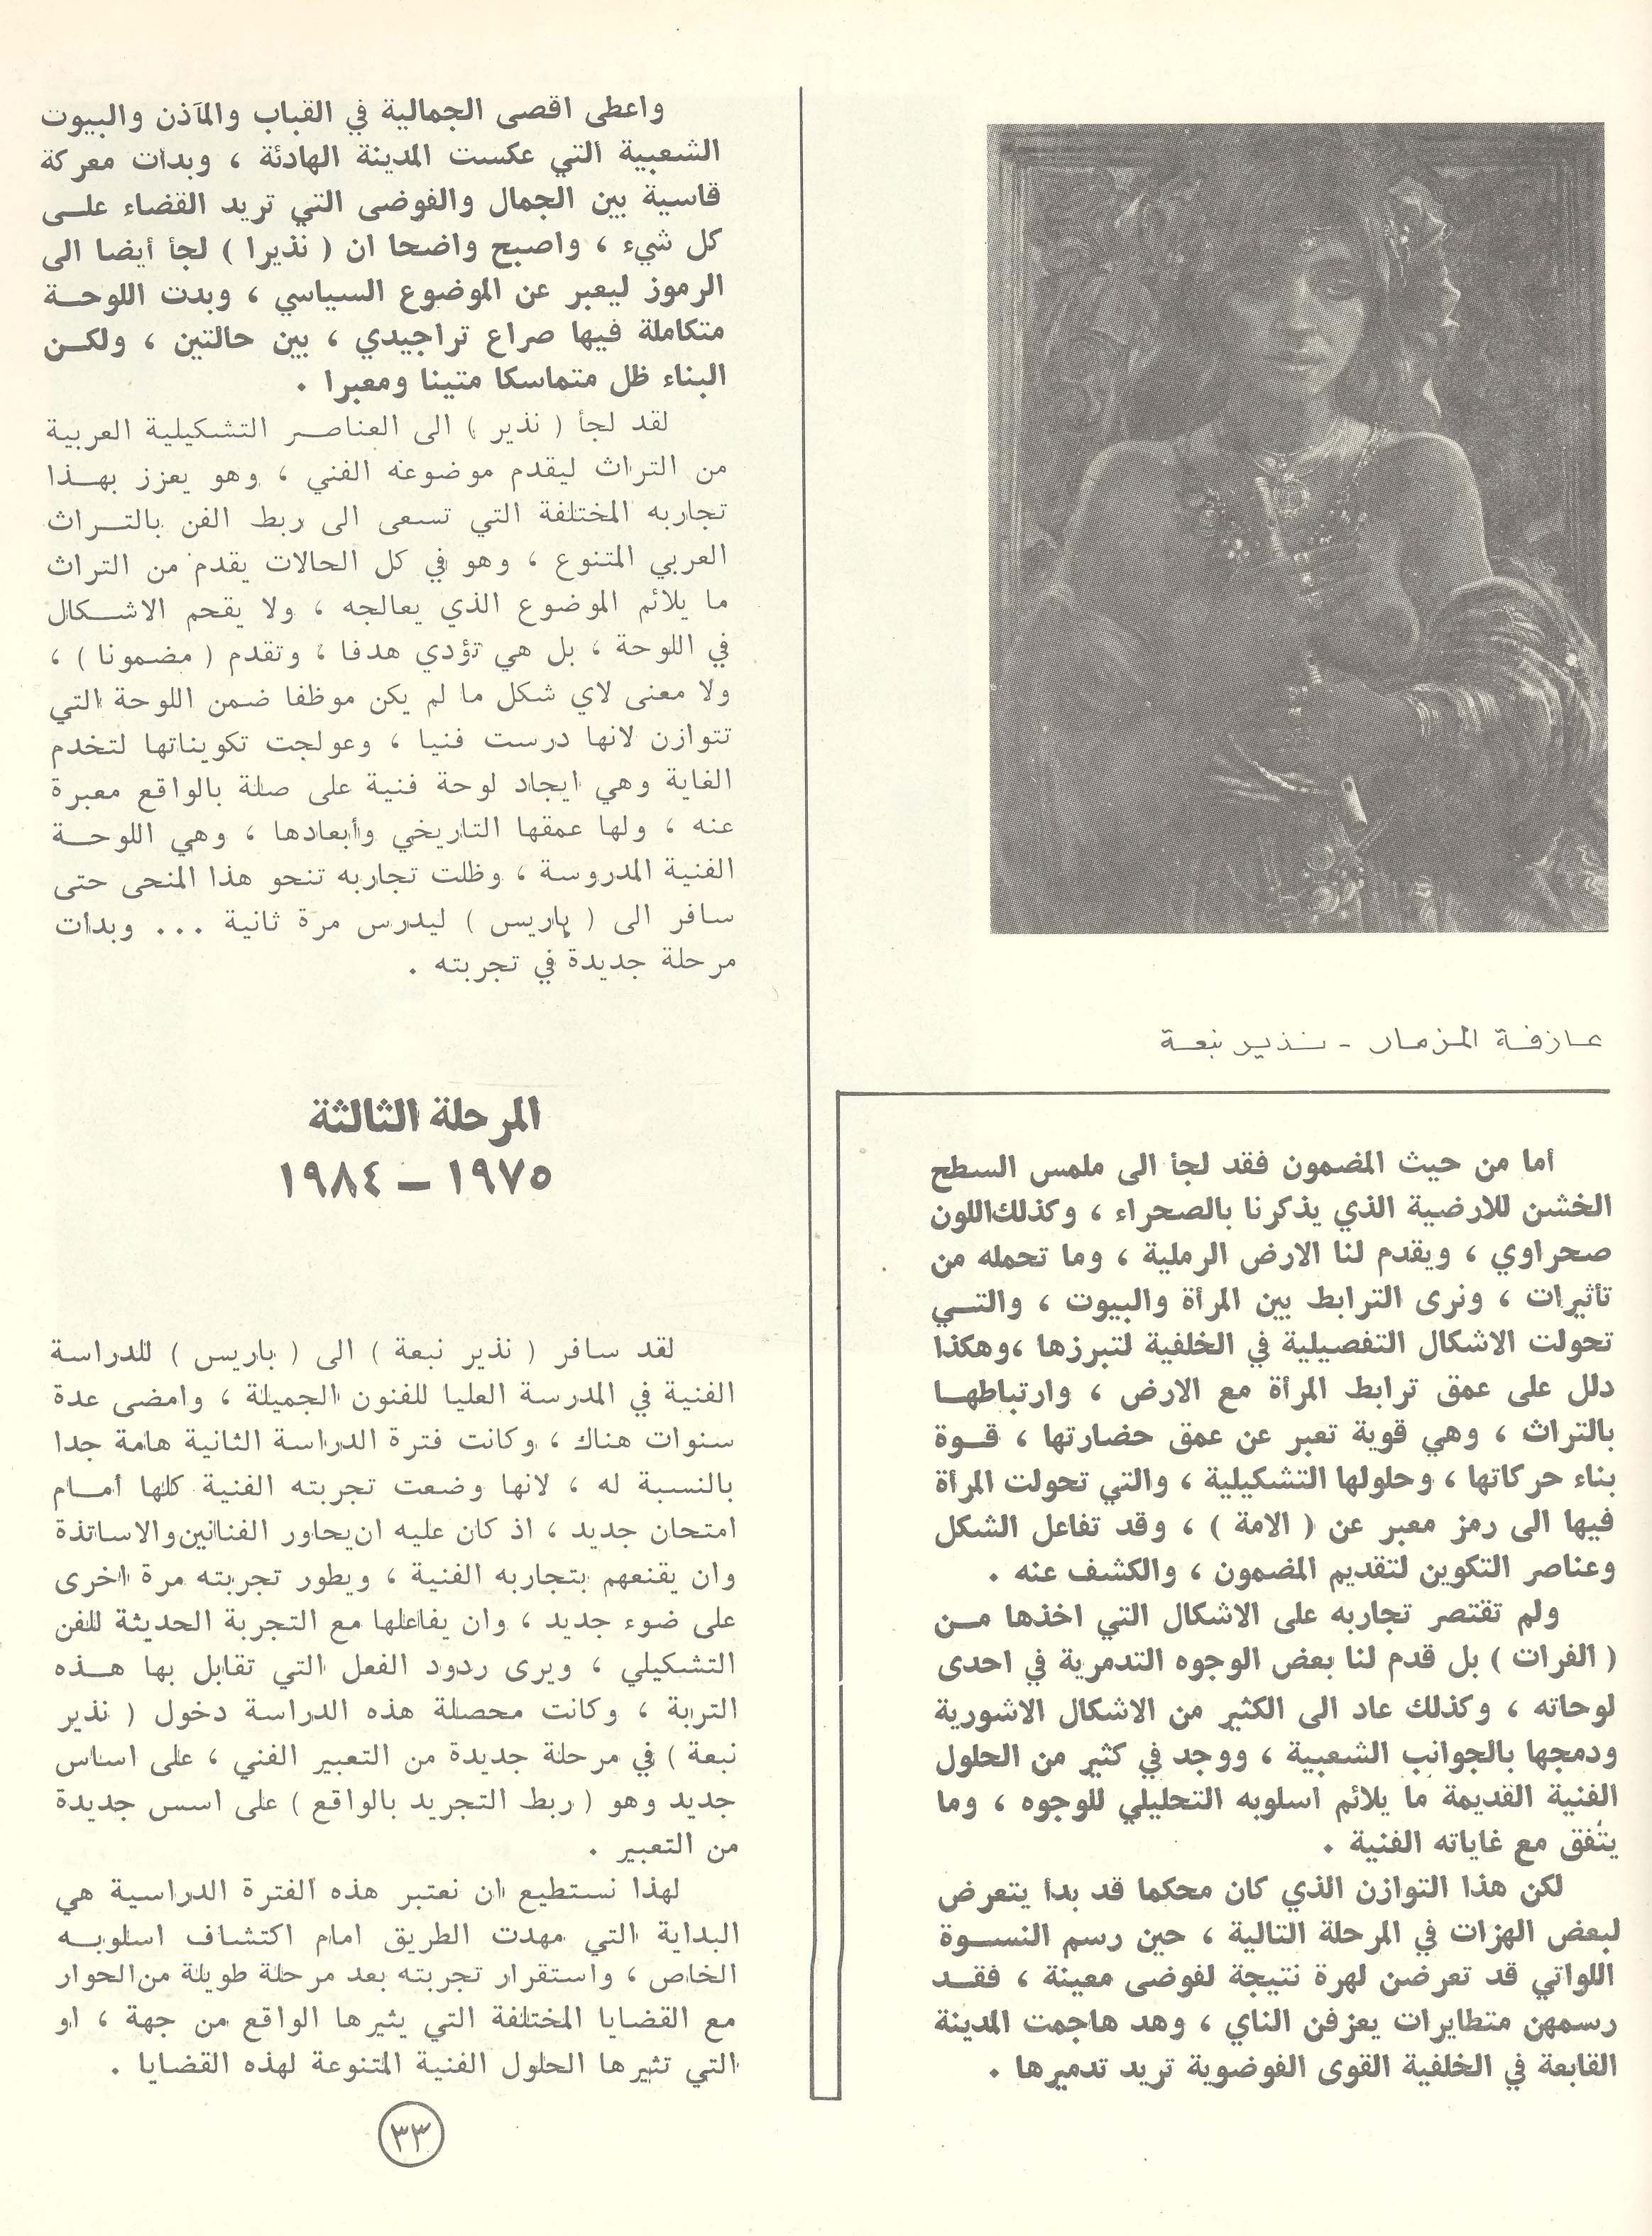 عازفة المزمار - نذير نبعة
أما من حيث المضمون فقد لجأ الى ملمس السطح
الخشن للارضية الذي يذكرنا بالصحراء ، وكذلك اللون
صحراوي ، ويقدم لنا الارض الرملية ، وما تحمله من
تأثيرات ، ونرى الترابط بين المرأة والبيوت ، والتي
تحولت الاشكال التفصيلية في الخلفية لتبرزها ، وهكذا
دلل على عمق ترابط المرأة مع الارض ، وارتباطها
بالتراث ، وهي قوية تعبر عن عمق حضارتها ، قوة
بناء حركاتها ، وحلولها التشكيلية ، والتي تحولت المرأة
فيها الى رمز معبر عن ( الامة ) ، وقد تفاعل الشكل
وعناصر التكوين لتقديم المضمون ، والكشف عنه .
ولم تقتصر تجاربه على الاشكال التي اخذها من
( الفرات ) بل قدم لنا بعض الوجوه التدمرية في احدى
لوحاته ، وكذلك عاد الى الكثير من الاشكال الاشورية
ودمجها بالجوانب الشعبية ، ووجد في كثير من الحلول
الفنية القديمة ما يلائم اسلوبه التحليلي للوجوه ، وما
يتفق مع غاياته الفنية .
لكن هذا التوازن الذي كان محكما قد بدأ يتعرض
لبعض الهزات في المرحلة التالية ، حين رسم النسوة
اللواتي قد تعرضن لهزة نتيجة لفوضى معينة ، فقد
رسمهن متطايرات يعزفن الناي ، وهد هاجمت المدينة
القابعة في الخلفية القوى الفوضوية تريد تدميرها .
واعطى اقصى الجمالية في القباب والمآذن والبيوت
الشعبية التي عكست المدينة الهادئة ، وبدأت معركة
قاسية بين الجمال والفوضى التي تريد القضاء على
كل شيء ، واصبح واضحا ان ( نذيرا ) لجأ أيضا الى
الرموز ليعبر عن الموضوع السياسي ، وبدت اللوحة
متكاملة فيها صراع تراجيدي ، بين حالتين ، ولكن
البناء ظل متماسكا متينا ومعبرا .
لقد لجأ ( نذير ) الى العناصر التشكيلية العربية
من التراث ليقدم موضوعه الفني ، وهو يعزز بهذا
تجاربه المختلفة التي تسعى الى ربط الفن بالتراث
العربي المتنوع ، وهو في كل الحالات يقدم من التراث
ما يلائم الموضوع الذي يعالجه ، ولا يقحم الاشكال
في اللوحة ، بل هي تؤدي هدفا ، وتقدم ( مضمونا ) ،
ولا معنى لاي شكل ما لم يكن موظفا ضمن اللوحة التي
تتوازن لانها درست فنيا ، وعولجت تكويناتها لتخدم
الغاية وهي ايجاد لوحة فنية على صلة بالواقع معبرة
عنه ، ولها عمقها التاريخي وأبعادها ، وهي اللوحة
الفنية المدروسة ، وظلت تجاربه تنحو هذا المنحى حتى
سافر الى ( باريس ) ليدرس مرة ثانية ... وبدأت
مرحلة جديدة في تجربته .
المرحلة الثالثة
١٩٧٥ – ١٩٨٤
لقد سافر ( نذير نبعة ) الى ( باريس ) للدراسة
الفنية في المدرسة العليا للفنون الجميلة ، وامضى عدة
سنوات هناك ، وكانت فترة الدراسة الثانية هامة جدا
بالنسبة له ، لانها وضعت تجربته الفنية كلها أمام
امتحان جديد ، اذ كان عليه ان يحاور الفنانين والاساتذة
وان يقنعهم بتجاربه الفنية ، ويطور تجربته مرة اخرى
على ضوء جديد ، وان يفاعلها مع التجربة الحديثة للفن
التشكيلي ، ويرى ردود الفعل التي تقابل بها هذه
التربة ، وكانت محصلة هذه الدراسة دخول ( نذير
نبعة ) في مرحلة جديدة من التعبير الفني ، على اساس
جديد وهو ( ربط التجريد بالواقع ) على اسس جديدة
من التعبير .
لهذا نستطيع ان نعتبر هذه الفترة الدراسية هي
البداية التي مهدت الطريق امام اكتشاف اسلوبه
الخاص ، واستقرار تجربته بعد مرحلة طويلة من الحوار
مع القضايا المختلفة التي يثيرها الواقع من جهة ، او
التي تثيرها الحلول الفنية المتنوعة لهذه القضايا .
٣٣